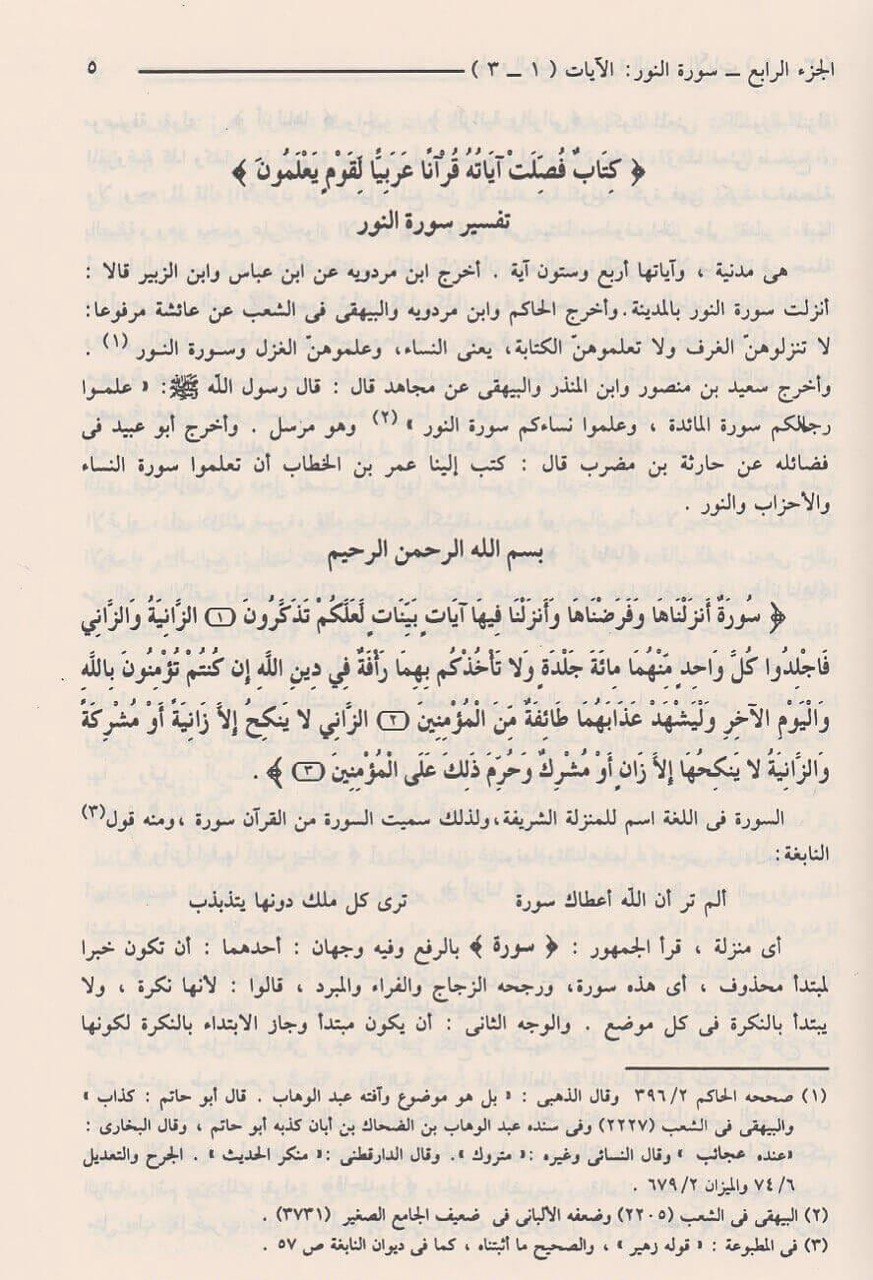 الجزء الرابع ــ سورة النور: الآيات ( ١ ــ ٣ ) ٥
﴿ كِتَابٌ فُصِّلَتْ آيَاتُهُ قُرْآنًا عَرَبِيًّا لِقَوْمٍ يَعْلَمُونَ ﴾
تفسير سورة النور
هى مدنية ، وآياتها أربع وستون آية . أخرج ابن مردويه عن ابن عباس وابن الزبير قالا :
أنزلت سورة النور بالمدينة. وأخرج الحاكم وابن مردويه والبيهقى فى الشعب عن عائشة مرفوعا:
لا تنزلوهنّ الغرف ولا تعلموهنّ الكتابة، يعنى النساء، وعلموهنّ الغزل وسورة النور (١) .
وأخرج سعيد بن منصور وابن المنذر والبيهقى عن مجاهد قال : قال رسول الله ﷺ: « علموا
رجالكم سورة المائدة ، وعلموا نساءكم سورة النور » (٢) وهو مرسل . وأخرج أبو عبيد فى
فضائله عن حارثة بن مضرب قال : كتب إلينا عمر بن الخطاب أن تعلموا سورة النساء
والأحزاب والنور .
بسم الله الرحمن الرحيم
﴿ سُورَةٌ أَنزَلْنَاهَا وَفَرَضْنَاهَا وَأَنزَلْنَا فِيهَا آيَاتٍ بَيِّنَاتٍ لَعَلَّكُمْ تَذَكَّرُونَ (١) الزَّانِيَةُ وَالزَّانِي
فَاجْلِدُوا كُلَّ وَاحِدٍ مِّنْهُمَا مِائَةَ جَلْدَةٍ وَلا تَأْخُذْكُم بِهِمَا رَأْفَةٌ فِي دِينِ اللَّهِ إِن كُنتُمْ تُؤْمِنُونَ بِاللَّهِ
وَالْيَوْمِ الآخِرِ وَلْيَشْهَدْ عَذَابَهُمَا طَائِفَةٌ مِّنَ الْمُؤْمِنِينَ (٢) الزَّانِي لا يَنكِحُ إِلاَّ زَانِيَةً أَوْ مُشْرِكَةً
وَالزَّانِيَةُ لا يَنكِحُهَا إِلاَّ زَانٍ أَوْ مُشْرِكٌ وَحُرِّمَ ذَلِكَ عَلَى الْمُؤْمِنِينَ (٣) ﴾ .
السورة فى اللغة اسم للمنزلة الشريفة، ولذلك سميت السورة من القرآن سورة ، ومنه قول(٣)
النابغة:
ألم تر أن الله أعطاك سورة ترى كل ملك دونها يتذبذب
أى منزلة ، قرأ الجمهور : ﴿ سورة ﴾ بالرفع وفيه وجهان : أحدهما : أن تكون خبرا
لمبتدأ محذوف ، أى هذه سورة، ورجحه الزجاج والفراء والمبرد ، قالوا : لأنها نكرة ، ولا
يبتدأ بالنكرة فى كل موضع . والوجه الثانى : أن يكون مبتدأ وجاز الابتداء بالنكرة لكونها
(١) صححه الحاكم ٣٩٦/٢ وقال الذهبى : « بل هو موضوع وآفته عبد الوهاب . قال أبو حاتم : كذاب »
والبيهقى فى الشعب (٢٢٢٧) وفى سنده عبد الوهاب بن الضحاك بن أبان كذبه أبو حاتم ، وقال البخارى :
«عنده عجائب » وقال النسائى وغيره :« متروك». وقال الدارقطنى :« منكر الحديث » . الجرح والتعديل
٧٤/٦ والميزان ٦٧٩/٢ .
(٢) البيهقى فى الشعب (٢٢٠٥) وضعفه الألبانى فى ضعيف الجامع الصغير (٣٧٣١) .
(٣) فى المطبوعة : « قوله زهير » ، والصحيح ما أثبتناه ، كما فى ديوان النابغة ص ٥٧ .